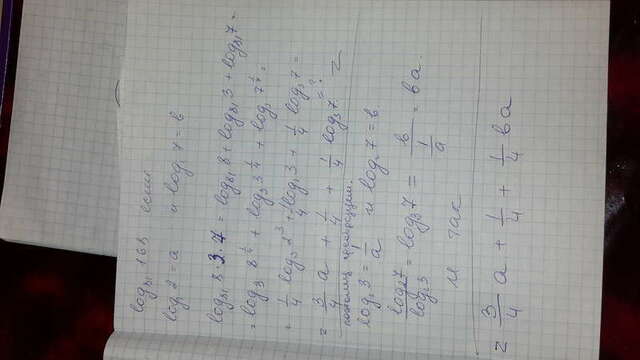 log₈₁ 168 если
log₃ 2 = a и log₂ 7 = в
log₈₁ 8·3·7 = log₈₁ 8 + log₈₁ 3 + log₈₁ 7 =
= log₃ 8^¼ + log₃ 3^¼ + log₃ 7^¼ =
= ¼ log₃ 2³ + ¼ log₃ 3 + ¼ log₃ 7 =
= ¾ a + ¼ + ¼ log₃ 7 = ? =
log₂ 3 = 1/a и log₂ 7 = в.
log₂ 7 / log₂ 3 = log₃ 7 = в / (1/a) = вa.
и так
= ¾ a + ¼ + ¼ вa